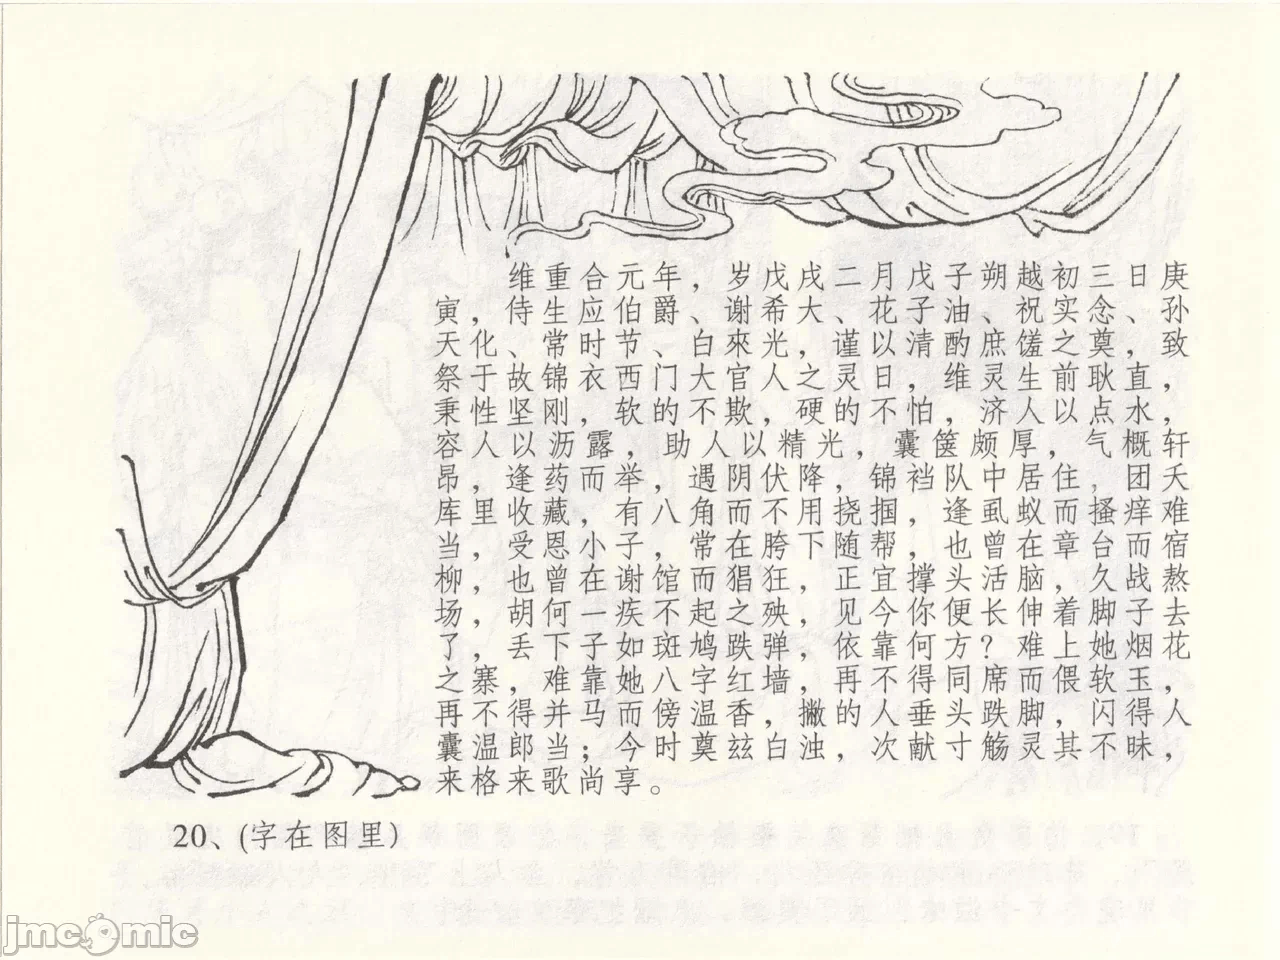 维重合元年，岁戊戌二月戊子朔越初三日庚
寅，侍生应伯爵、谢希大、花子油、祝实念、孙
天化、常时节、白來光，谨以清酌庶馐之奠，致
祭于故锦衣西门大官人之灵日，维灵生前耿直，
秉性坚刚，软的不欺，硬的不怕，济人以点水，
容人以沥露，助人以精光，囊篋颇厚，气概轩
昂，逢药而举，遇阴伏降，锦裆队中居住，团夭
库里收藏，有八角而不用挠掴，逢虱蚁而搔痒难
当，受恩小子，常在胯下随帮，也曾在章台而宿
柳，也曾在谢馆而猖狂，正宜撑头活脑，久战熬
场，胡何一疾不起之殃，见今你便长伸着脚子去
了，丢下子如斑鸠跌弹，依靠何方？难上她烟花
之寨，难靠她八字红墙，再不得同席而偎软玉，
再不得并马而傍温香，撇的人垂头跌脚，闪得人
囊温郎当；今时奠兹白浊，次献寸觞灵其不昧，
来格来歌尚享。
20、(字在图里）
jmcomic